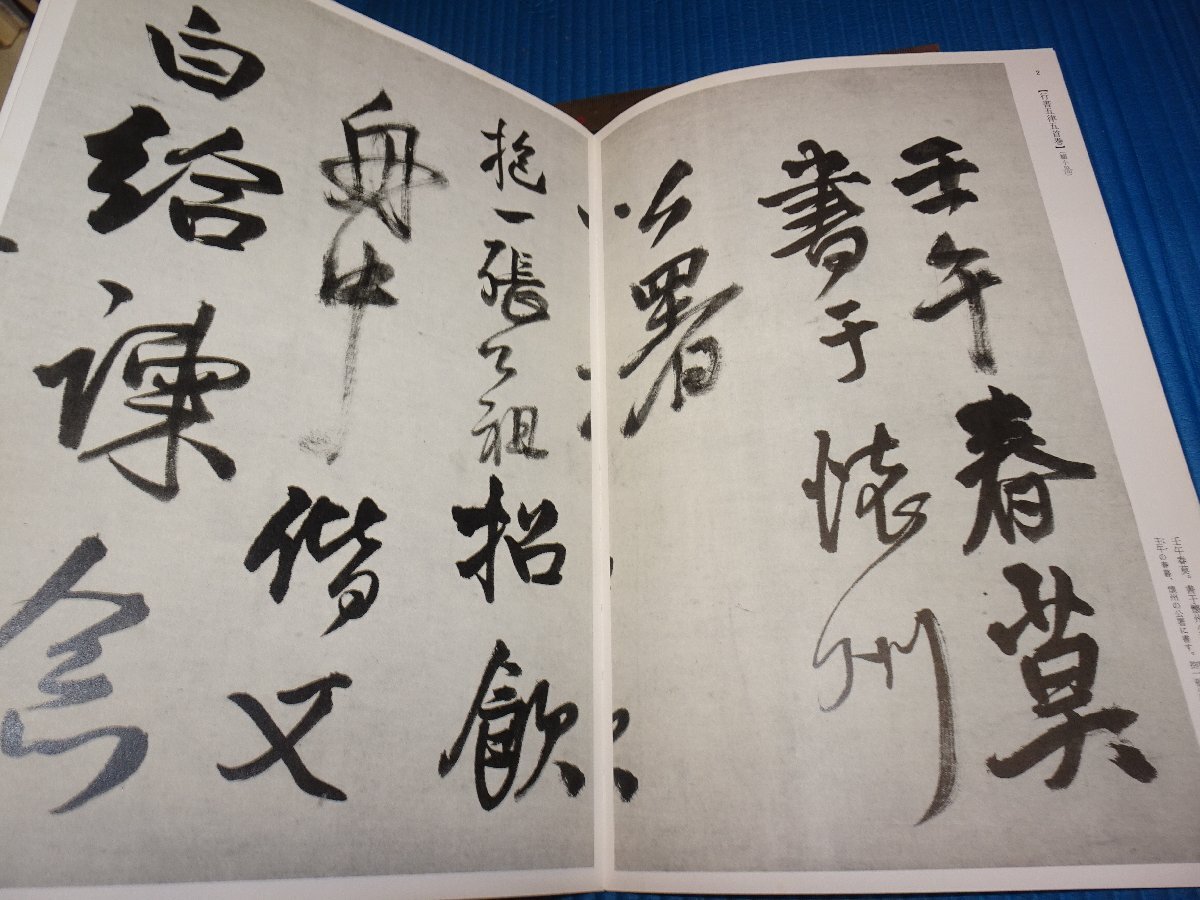 2
【行書五律五首巻】
壬午春莫
書于懷州
公署
抱一張公祖招飲
舟中偕又
白給諫
壬午春莫。書于懷州
壬午の春暮、懷州の公署に書す。抱一